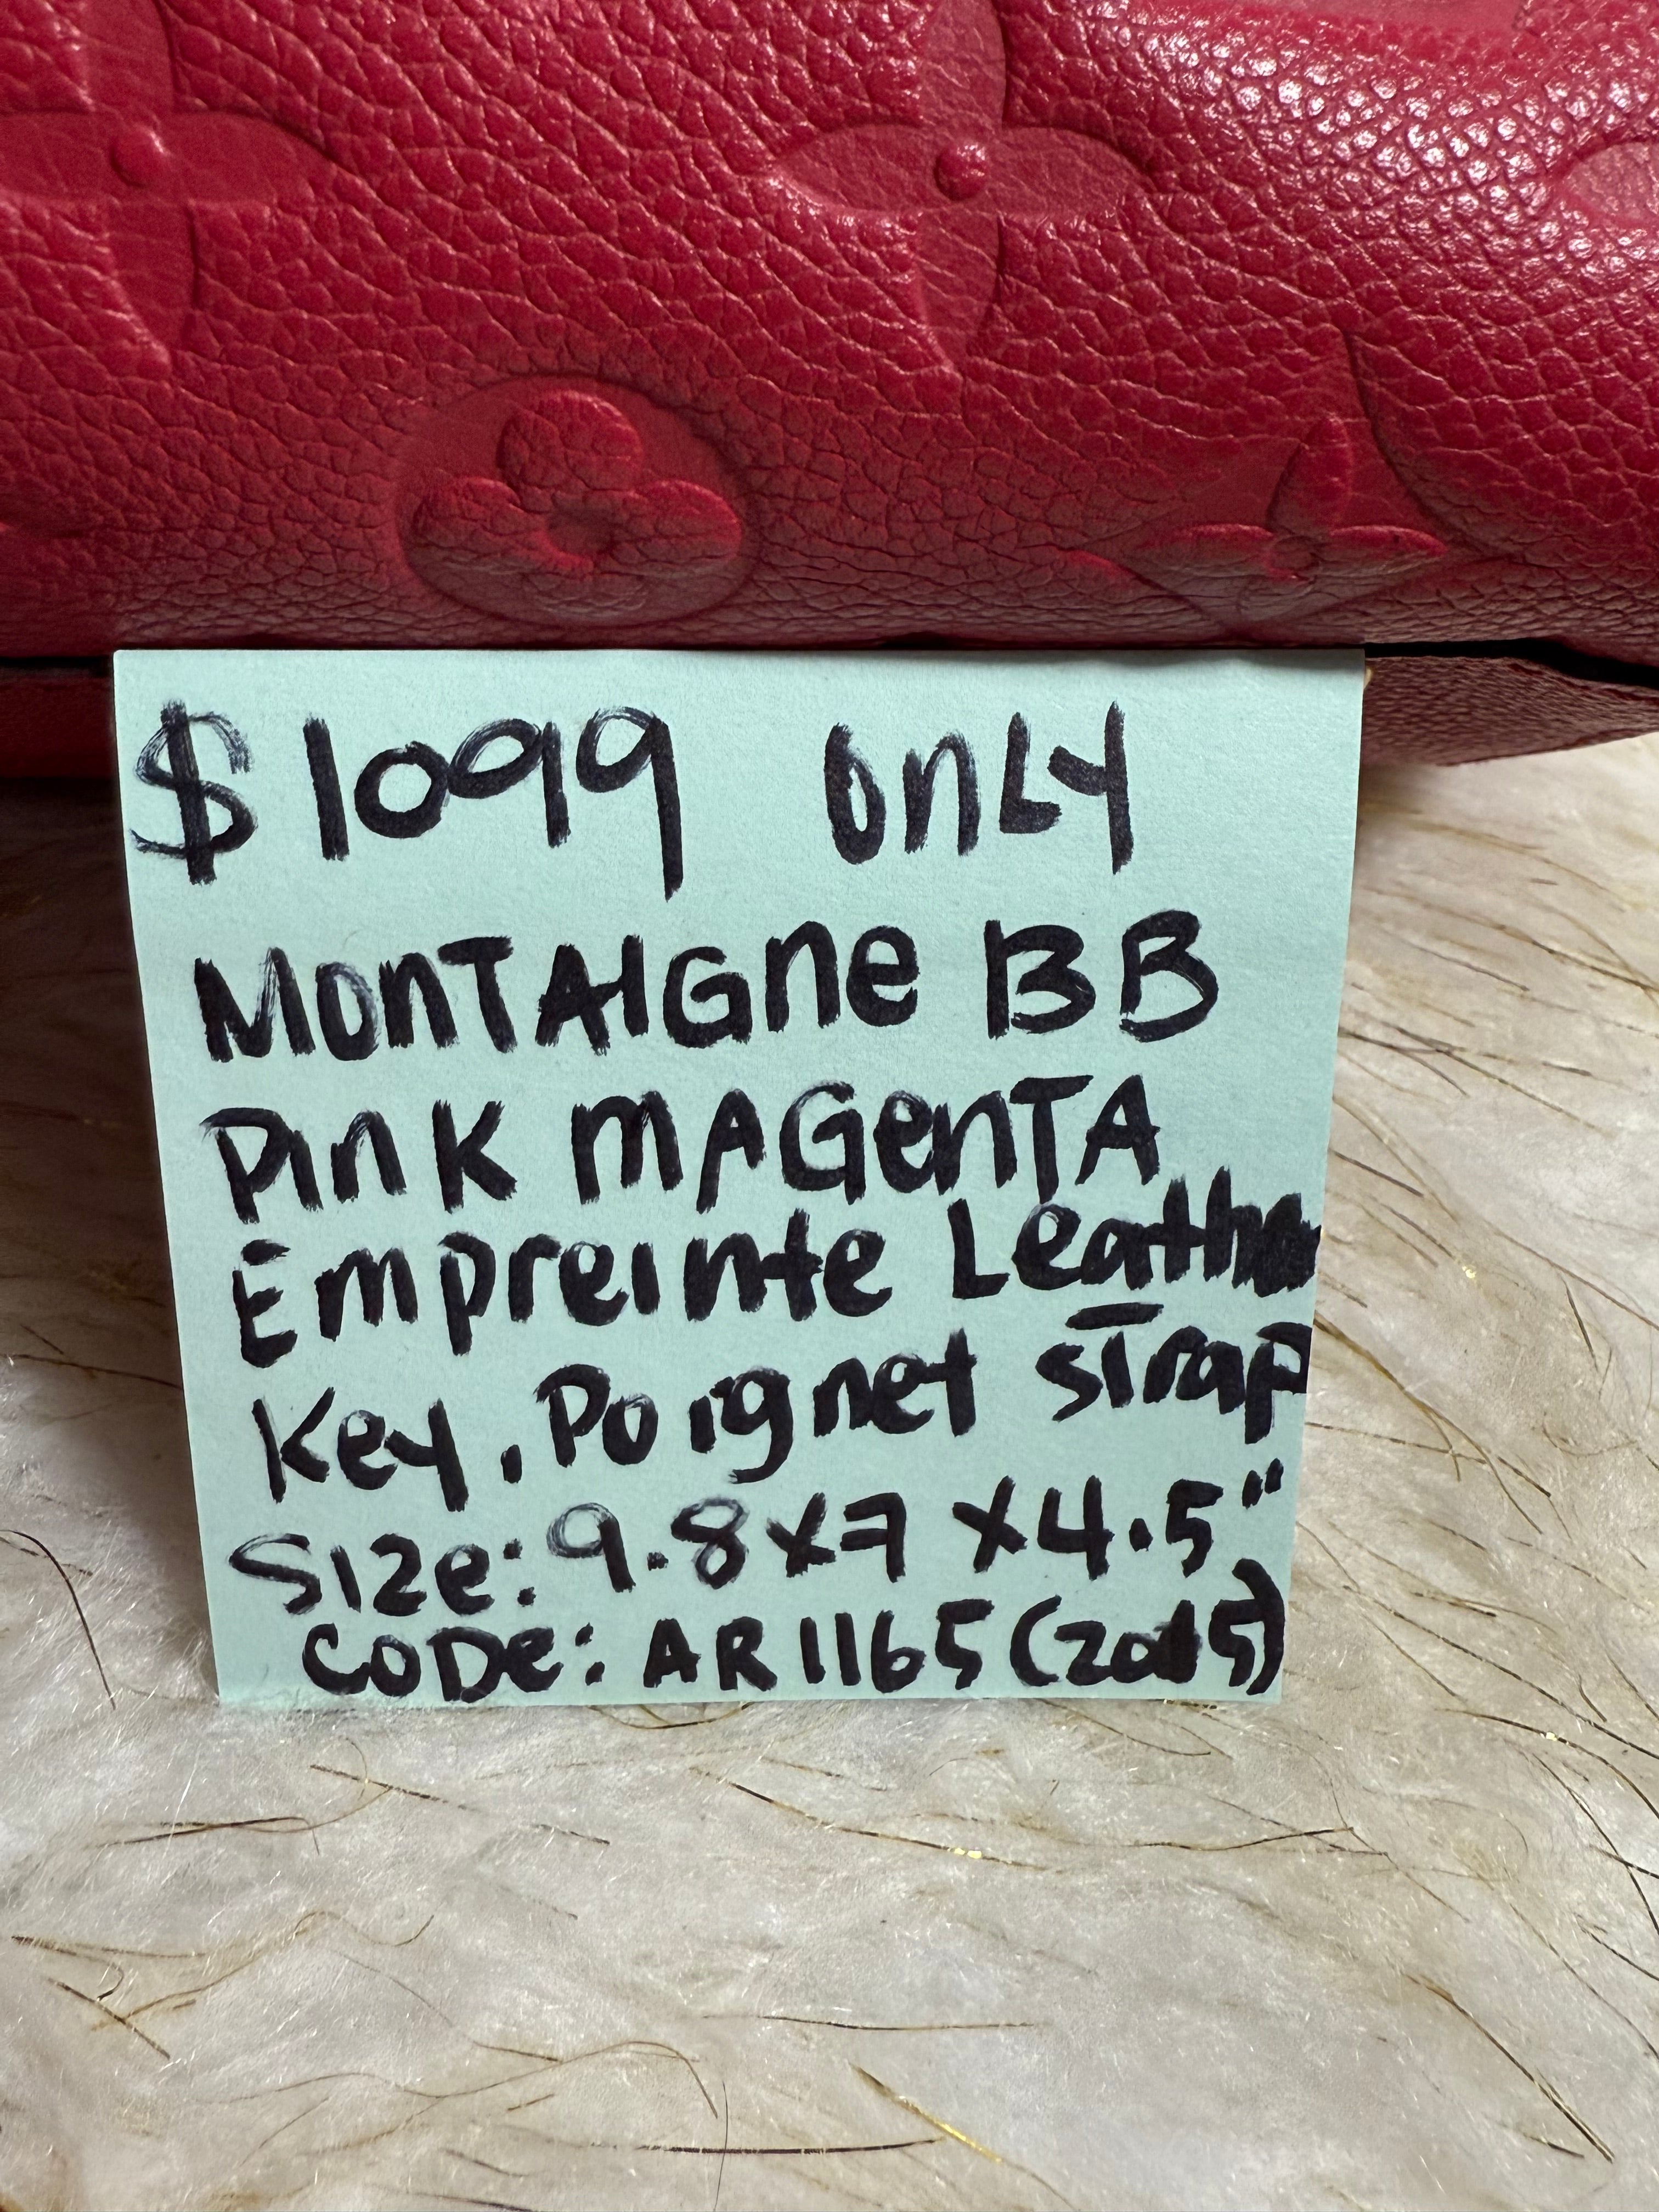 $1099 only
Montaigne BB
Pink Magenta
Empreinte Leather
Key, Poignet strap
Size: 9.8x7 x4.5"
Code: AR1165 (2015)